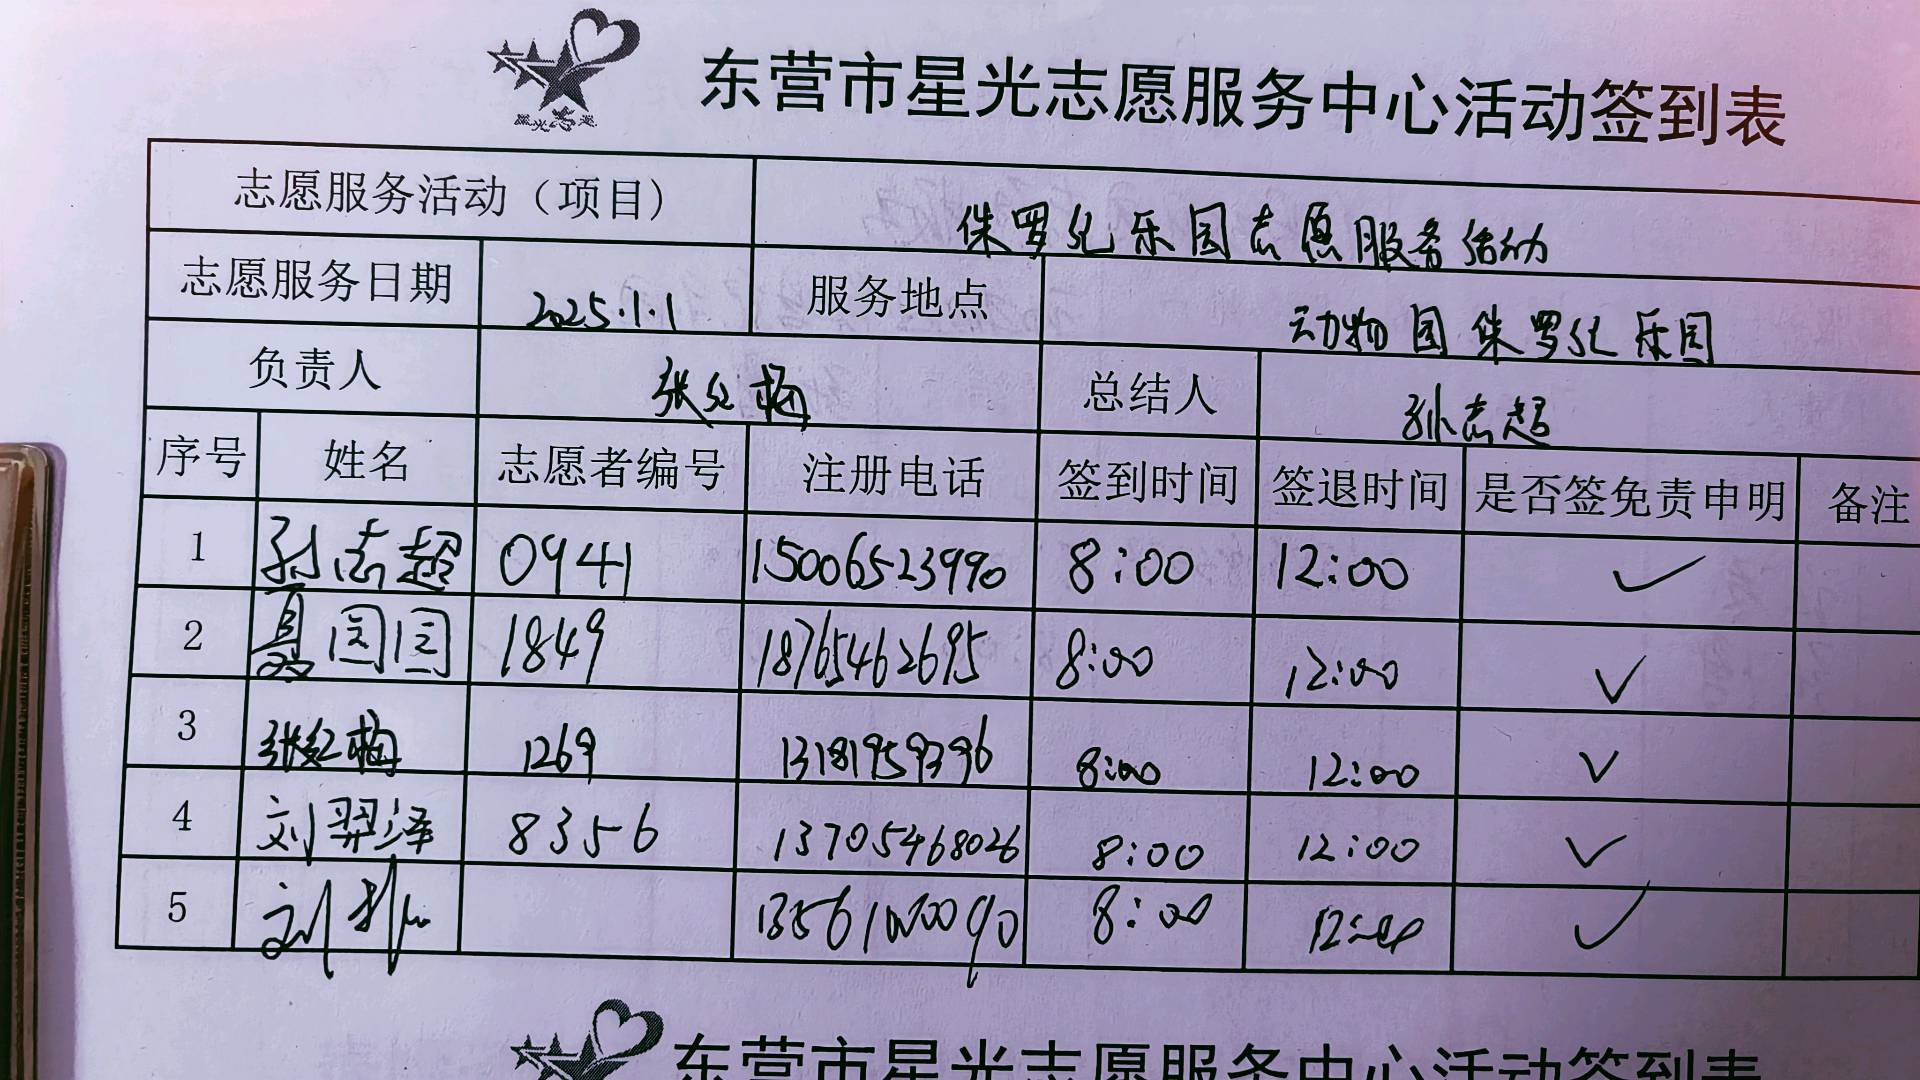 星光志愿
东营市星光志愿服务中心活动签到表
志愿服务活动（项目） 侏罗纪乐园志愿服务活动
志愿服务日期 2025.1.1 服务地点 动物园侏罗纪乐园
负责人 张红梅 总结人 孙志超
序号 姓名 志愿者编号 注册电话 签到时间 签退时间 是否签免责申明 备注
1 孙志超 0941 15006523990 8:00 12:00 ✓
2 聂园园 1849 18765462695 8:00 12:00 ✓
3 张红梅 1269 13181959396 8:00 12:00 ✓
4 刘羿泽 8356 13705468026 8:00 12:00 ✓
5 刘 8:00 12:00 ✓
东营市星光志愿服务中心活动签到表